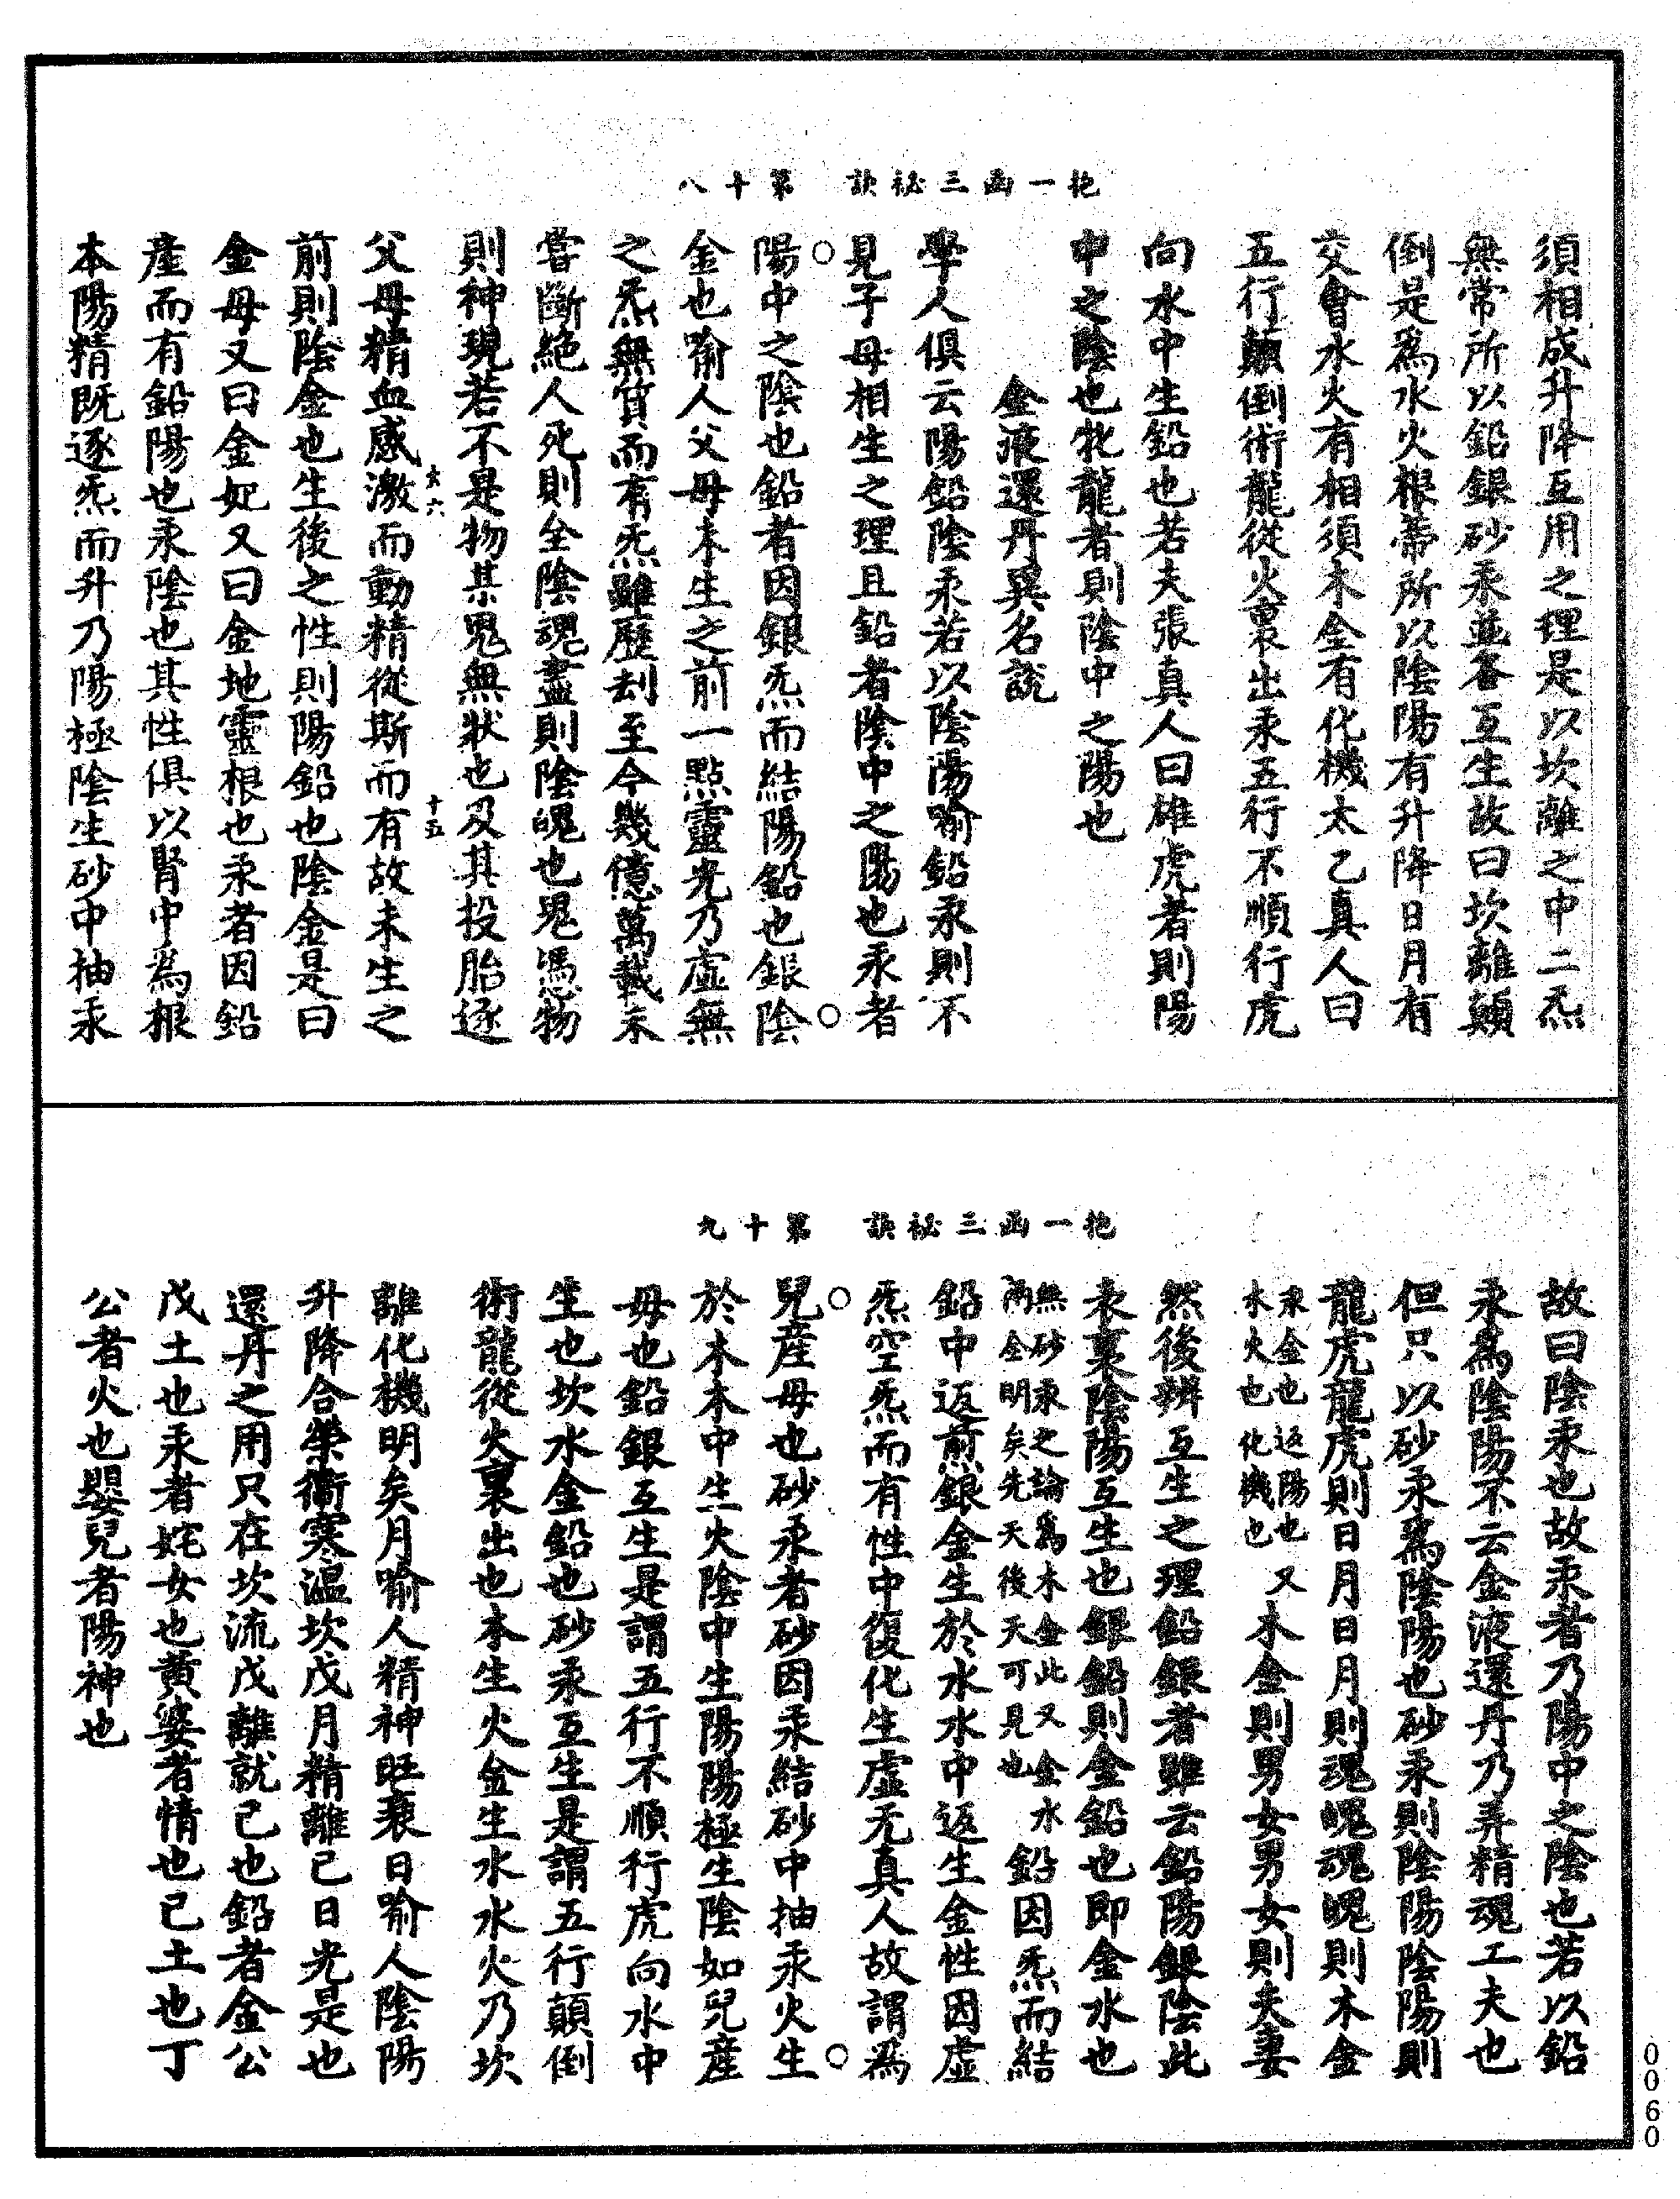 抱一函三祕訣　第十八
須相成升降互用之理是以坎離之中二炁
無常所以鉛銀砂汞並各互生故曰坎離顛
倒是為水火根蒂所以陰陽有升降日月有
交會水火有相須木金有化機太乙真人曰
五行顛倒術龍從火裏出汞五行不順行虎
向水中生鉛也若夫張真人曰雄虎者則陽
中之陰也牝龍者則陰中之陽也
金液還丹異名說
學人俱云陽鉛陰汞若以陰陽喻鉛汞則不
見子母相生之理且鉛者陰中之陽也汞者
陽中之陰也鉛者因銀炁而結陽鉛也銀陰
金也喻人父母未生之前一點靈光乃虛無
之炁無質而有炁雖歷劫至今幾億萬載未
嘗斷絕人死則全陰魂盡則陰魄也鬼憑物
則神現若不是物其鬼無狀也及其投胎逐
父母精血感激而動精從斯而有故未生之
六六　十五
前則陰金也生後之性則陽鉛也陰金是曰
金母又曰金妃又曰金地靈根也汞者因鉛
產而有鉛陽也汞陰也其性俱以腎中為根
本陽精既逐炁而升乃陽極陰生砂中抽汞
抱一函三祕訣　第十九
故曰陰汞也故汞者乃陽中之陰也若以鉛
汞為陰陽不云金液還丹乃弄精魂工夫也
但只以砂汞為陰陽也砂汞則陰陽陰陽則
龍虎龍虎則日月日月則魂魄魂魄則木金
汞金也返陽也又
水火也化機也
木金則男女男女則夫妻
然後辨互生之理鉛銀者雖云鉛陽銀陰此
汞裏陰陽互生也銀鉛則金鉛也即金水也
無砂汞之論為木金此又金水
兩全明矣先天後天可見也
鉛因炁而結
鉛中返煎銀金生於水水中返生金性因虛
炁空炁而有性中復化生虛无真人故謂為
兒產母也砂汞者砂因汞結砂中抽汞火生
於木木中生火陰中生陽陽極生陰如兒產
母也鉛銀互生是謂五行不順行虎向水中
生也坎水金鉛也砂汞互生是謂五行顛倒
術龍從火裏出也本生火金生水水火乃坎
離化機明矣月喻人精神旺衰日喻人陰陽
升降合榮衞寒溫坎戊月精離己日光是也
還丹之用只在坎流戊離就己也鉛者金公
戊土也汞者姹女也黃婆者情也己土也丁
公者火也嬰兒者陽神也
0060